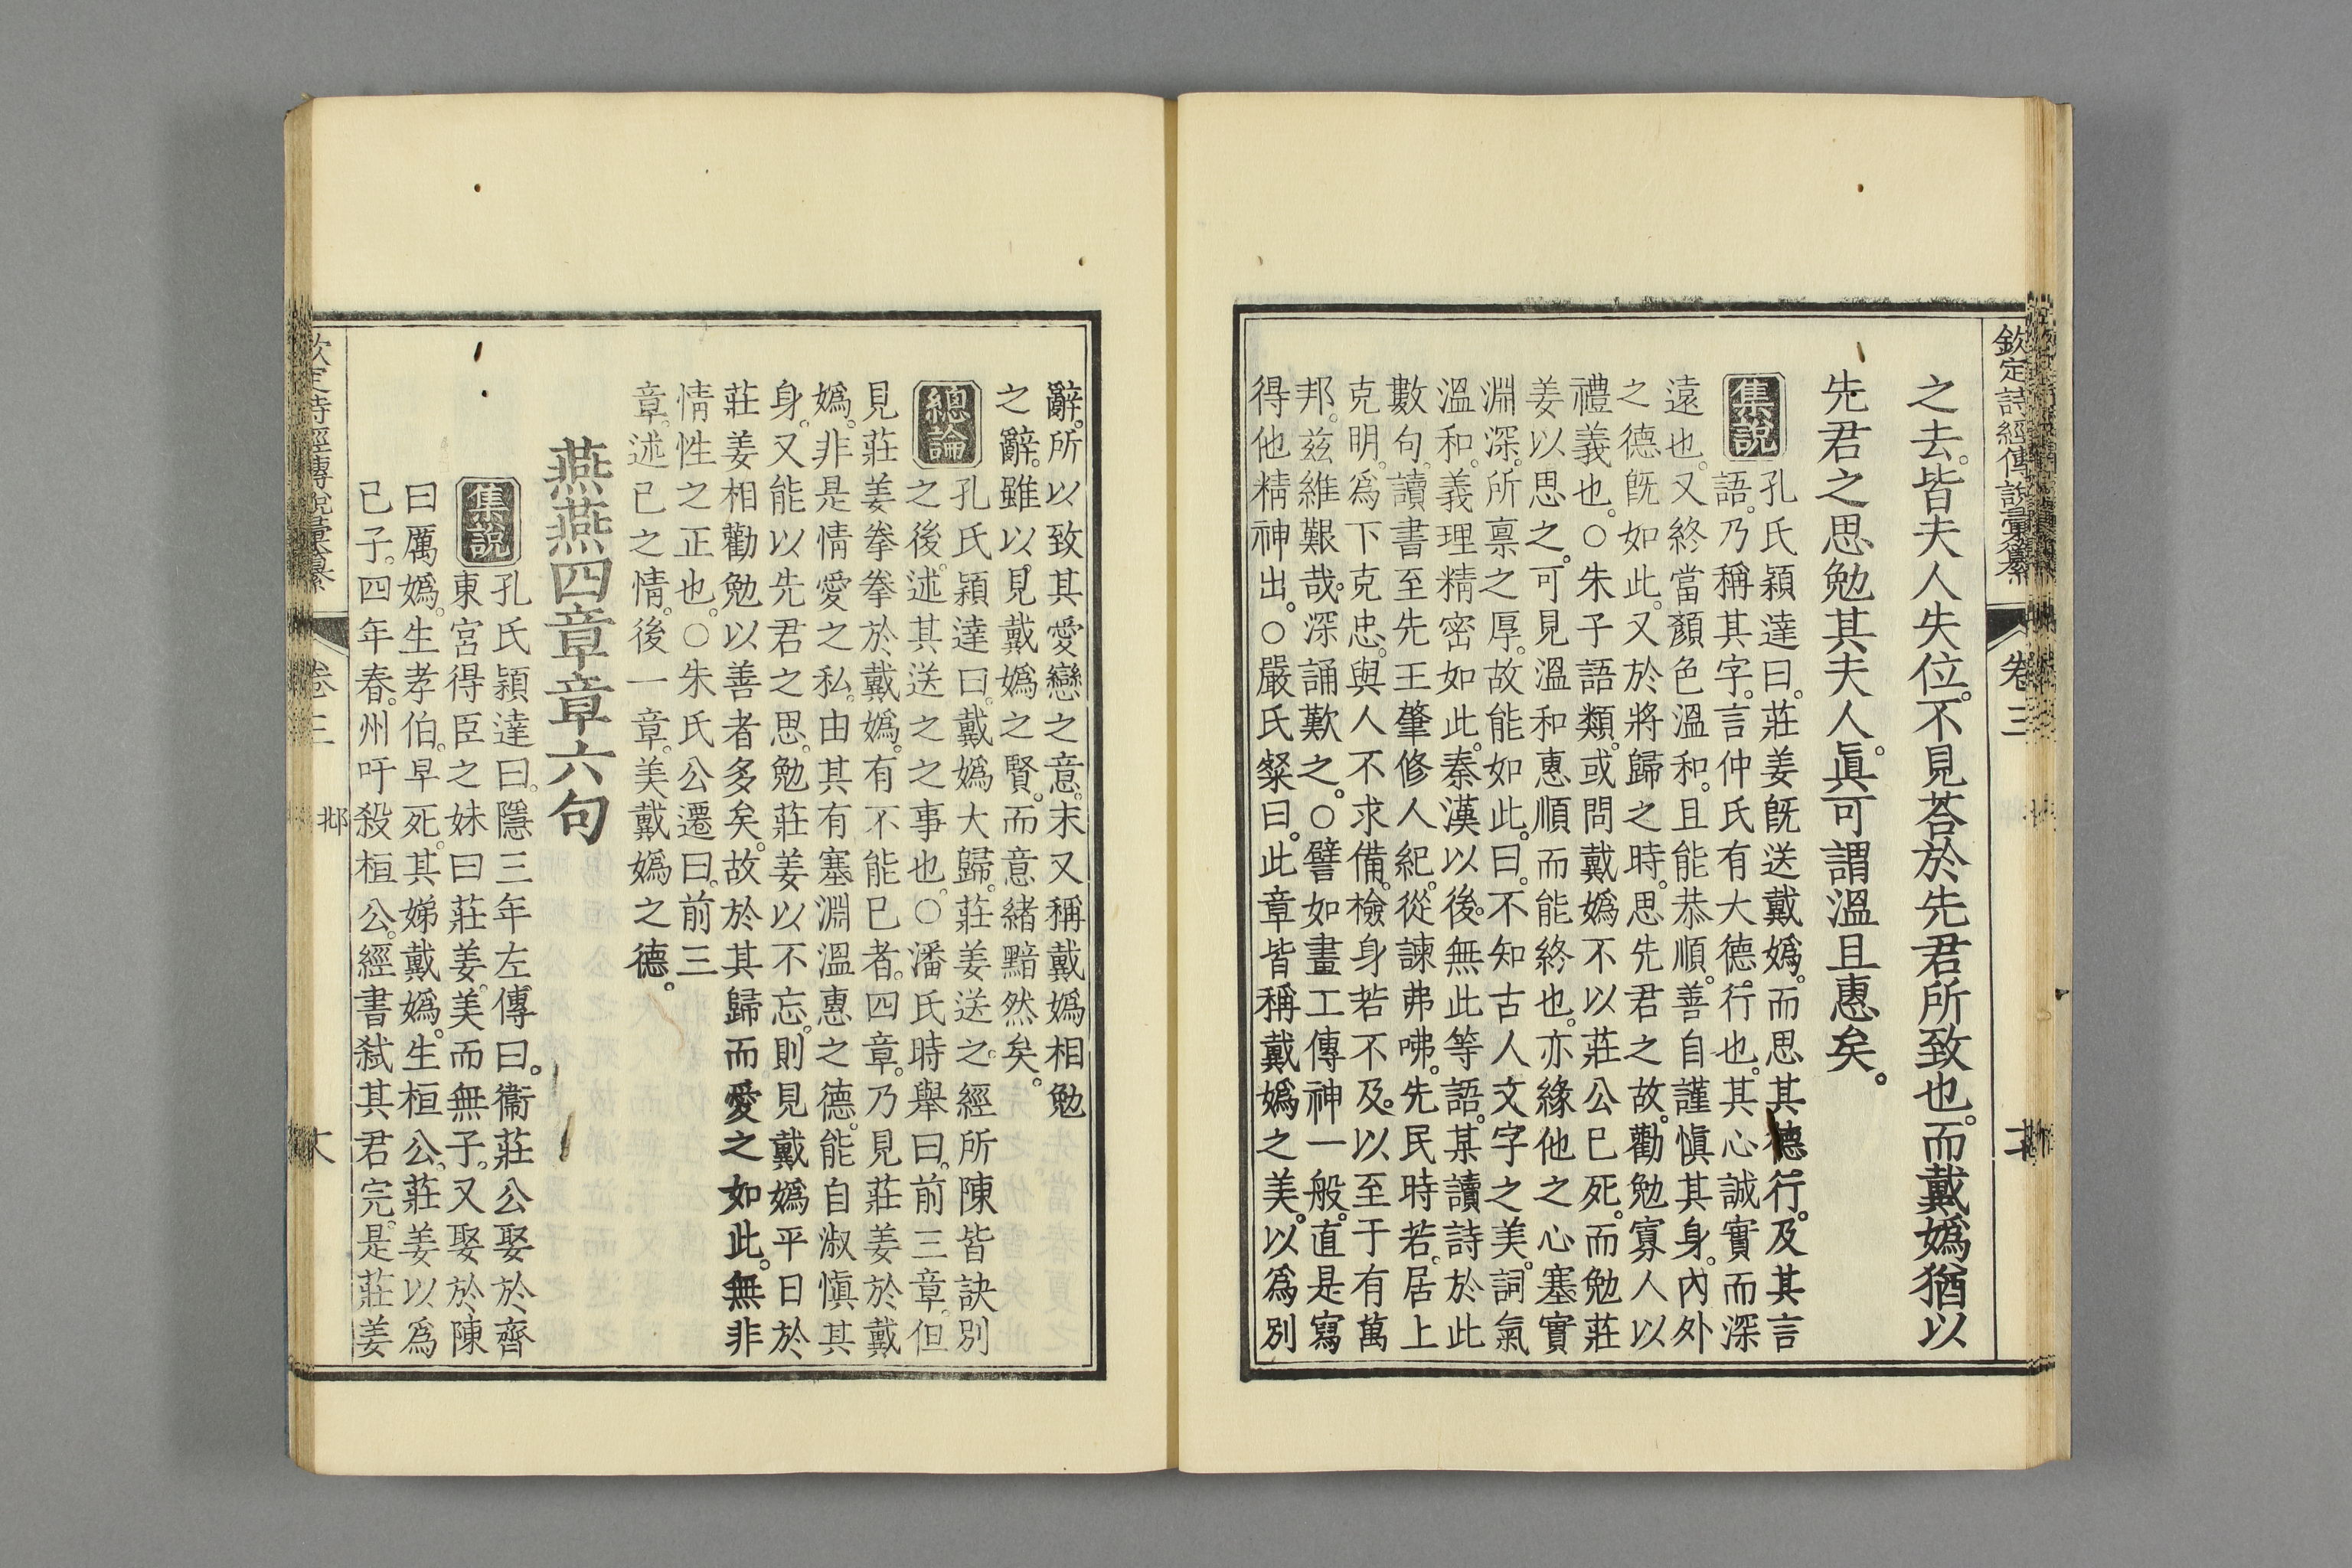 欽定詩經傳說彙纂 卷三
之去。皆夫人失位。不見荅於先君所致也。而戴嬀猶以
先君之思勉其夫人。眞可謂溫且惠矣。
集說
孔氏穎達曰。莊姜旣送戴嬀。而思其德行。及其言
語。乃稱其字。言仲氏有大德行也。其心誠實而深
遠也。又終當顏色溫和。且能恭順。善自謹愼其身。內外
之德旣如此。又於將歸之時。思先君之故。勸勉寡人以
禮義也。○朱子語類。或問戴嬀不以莊公已死。而勉莊
姜以思之。可見溫和惠順而能終也。亦緣他之心塞實
淵深。所禀之厚。故能如此。曰。不知古人文字之美。詞氣
溫和。義理精密如此。秦漢以後。無此等語。某讀詩於此
數句。讀書至先王肇修人紀。從諫弗咈。先民時若。居上
克明。爲下克忠。與人不求備。檢身若不及。以至于有萬
邦。玆維艱哉。深誦歎之。○譬如畫工傳神一般。直是寫
得他精神出。○嚴氏粲曰。此章皆稱戴嬀之美。以爲別
辭。所以致其愛戀之意。末又稱戴嬀相勉
之辭。雖以見戴嬀之賢。而意緒黯然矣。
總論
孔氏穎達曰。戴嬀大歸。莊姜送之。經所陳皆訣別
之後。述其送之之事也。○潘氏時舉曰。前三章。但
見莊姜拳拳於戴嬀。有不能已者。四章。乃見莊姜於戴
嬀。非是情愛之私。由其有塞淵溫惠之德。能自淑愼其
身。又能以先君之思。勉莊姜以不忘。則見戴嬀平日於
莊姜相勸勉以善者多矣。故於其歸而愛之如此。無非
情性之正也。○朱氏公遷曰。前三
章。述已之情。後一章。美戴嬀之德。
燕燕四章章六句
集說
孔氏穎達曰。隱三年左傳曰。衞莊公娶於齊
東宮得臣之妹曰莊姜。美而無子。又娶於陳
曰厲嬀。生孝伯。早死。其娣戴嬀。生桓公。莊姜以爲
已子。四年春。州吁殺桓公。經書弑其君完。是莊姜
詩經傳說彙纂 卷三 邶